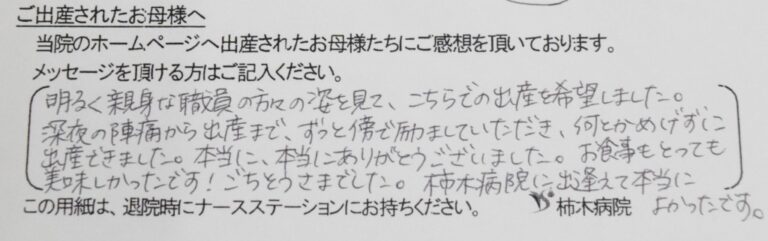 ご出産されたお母様へ
当院のホームページへ出産されたお母様たちにご感想を頂いております。
メッセージを頂ける方はご記入ください。
明るく親身な職員の方々の姿を見て、こちらでの出産を希望しました。
深夜の陣痛から出産まで、ずっと傍で励ましていただき、何とかめげずに
出産できました。本当に、本当にありがとうございました。お食事もとっても
美味しかったです!ごちそうさまでした。柿木病院に出逢えて本当に
よかったです。
この用紙は、退院時にナースステーションにお持ちください。 柿木病院